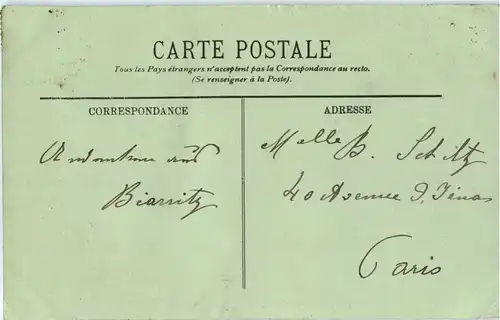 CARTE POSTALE
Tous les Pays étrangers n'acceptent pas la Correspondance au recto.
(Se renseigner à la Poste).
CORRESPONDANCE
ADRESSE
Biarritz
Melle B. Schiltz
40 Avenue d'Iéna
Paris